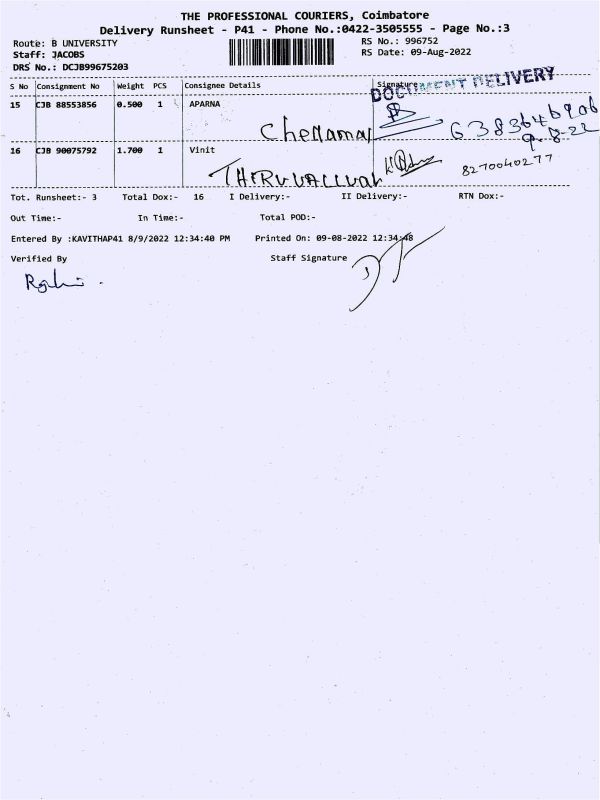 THE PROFESSIONAL COURIERS, Coimbatore
Delivery Runsheet - P41 - Phone No.:0422-3505555 - Page No.:3
Route: B UNIVERSITY
RS No.: 996752
Staff: JACOBS
RS Date: 09-Aug-2022
DRS No.: DCJB99675203
S No Consignment No Weight PCS Consignee Details Signature
DOCUMENT DELIVERY
15 CJB 88553856 0.500 1 APARNA
Chellamal
9.8.22
16 CJB 90075792 1.700 1 Vinit
THIRUVALLUVAR 8270040277
Tot. Runsheet:- 3 Total Dox:- 16 I Delivery:- II Delivery:- RTN Dox:-
Out Time:- In Time:- Total POD:-
Entered By :KAVITHAP41 8/9/2022 12:34:40 PM Printed On: 09-08-2022 12:34:48
Verified By Staff Signature